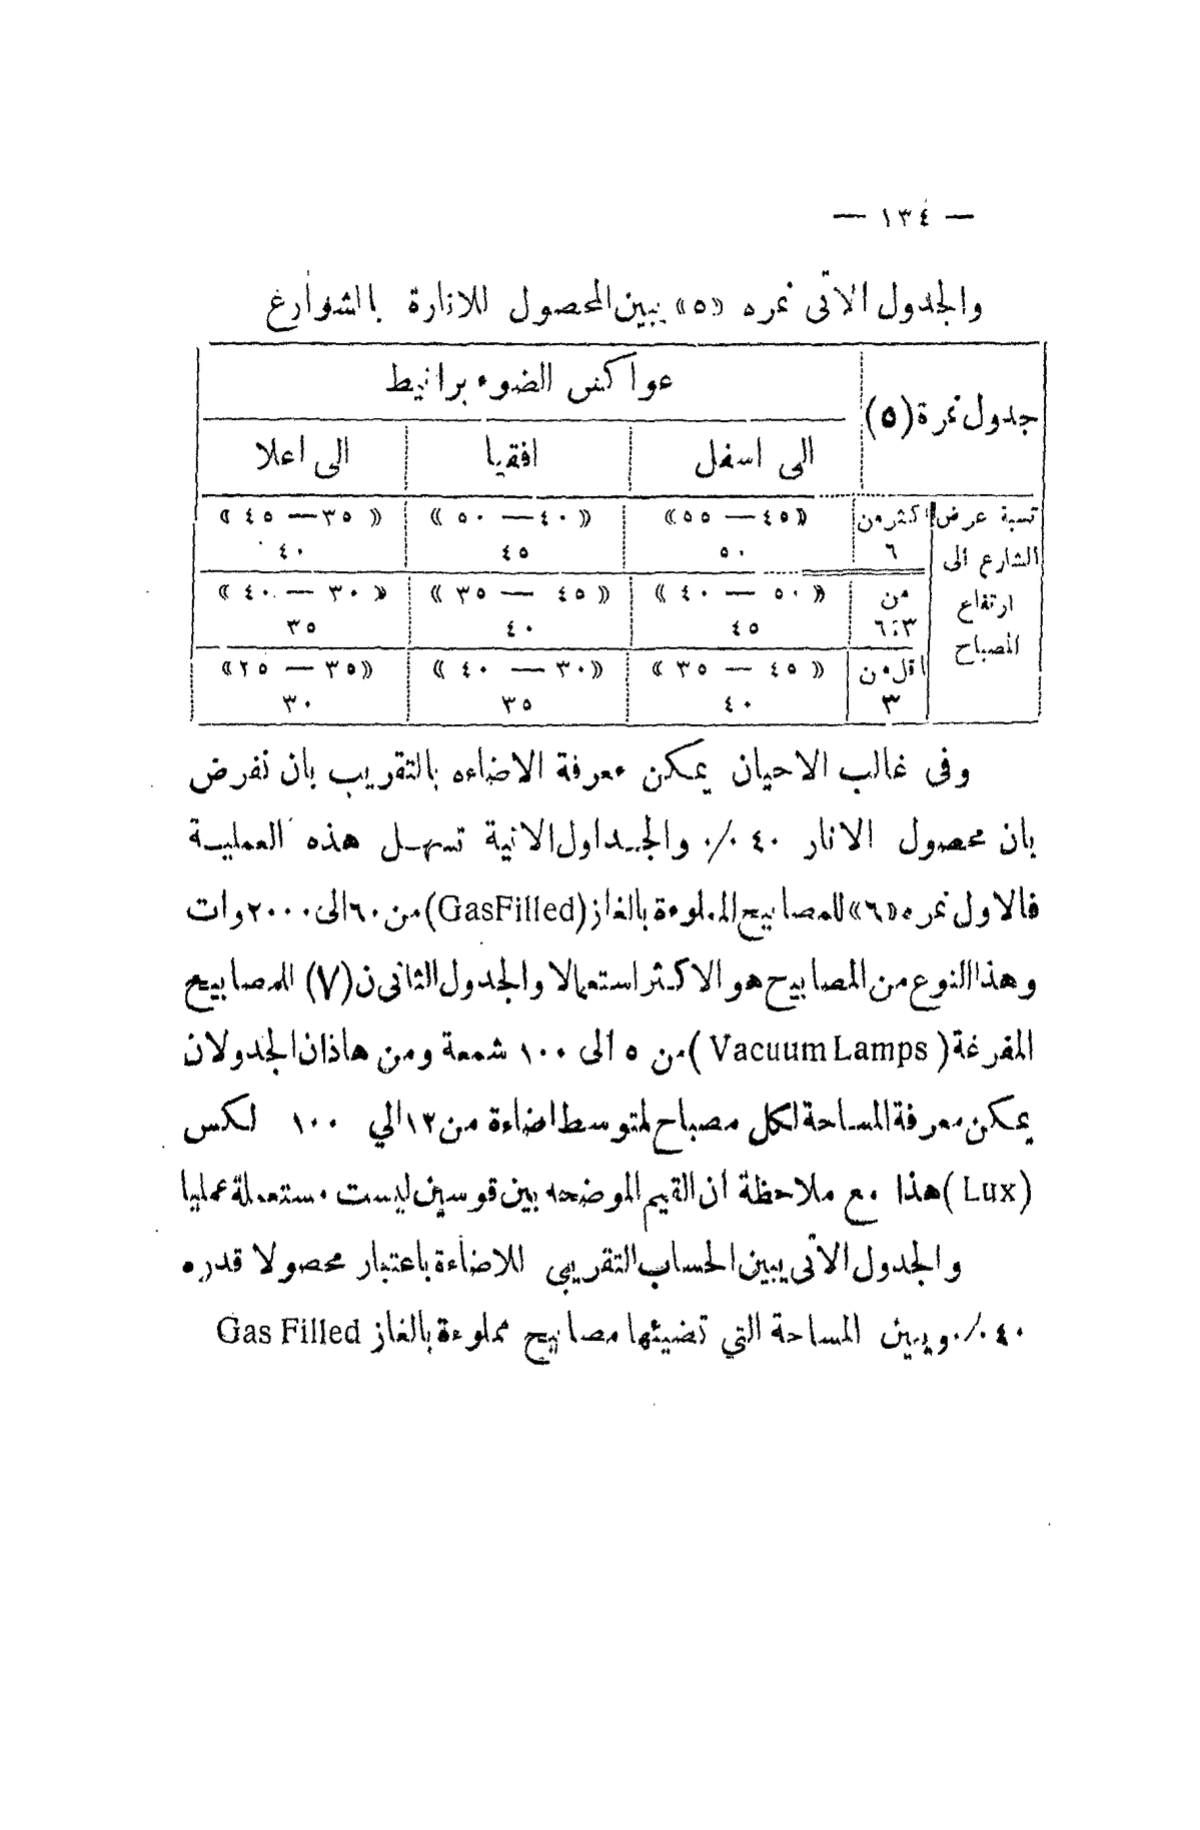 — ١٣٤ —
والجدول الاتى نمره «٥» يبين المحصول للانارة بالشوارع
جدول نمرة (٥)
عواكس الضوء برانيط
الى اسفل افقيا الى اعلا
نسبة عرض الشارع الى ارتفاع المصباح
اكثر من ٦ «٤٥ — ٥٥» ٥٠ «٤٠ — ٥٠» ٤٥ «٣٥ — ٤٥» ٤٠
من ٣ : ٦ «٥٠ — ٤٠» ٤٥ «٤٥ — ٣٥» ٤٠ «٣٠ — ٤٠» ٣٥
اقل من ٣ «٤٥ — ٣٥» ٤٠ «٣٠ — ٤٠» ٣٥ «٣٥ — ٢٥» ٣٠
وفى غالب الاحيان يمكن معرفة الاضاءه بالتقريب بان نفرض
بان محصول الانار ٤٠ ٪ والجداول الاتية تسهل هذه العملية
فالاول نمره «٦» للمصابيح المملوءة بالغاز (GasFilled) من ٦٠ الى ٢٠٠٠ وات
وهذا النوع من المصابيح هو الاكثر استعمالا والجدول الثانى ن (٧) للمصابيح
المفرغة (Vacuum Lamps) من ٥ الى ١٠٠ شمعة ومن هاذان الجدولان
يمكن معرفة المساحة لكل مصباح لمتوسط اضاءة من ١٢ الي ١٠٠ لكس
(Lux) هذا مع ملاحظة ان القيم الموضحه بين قوسين ليست مستعملة عمليا
والجدول الاتى يبين الحساب التقريبي للاضاءة باعتبار محصولا قدره
٤٠ ٪ ويبين المساحة التي تضيئها مصابيح مملوءة بالغاز Gas Filled